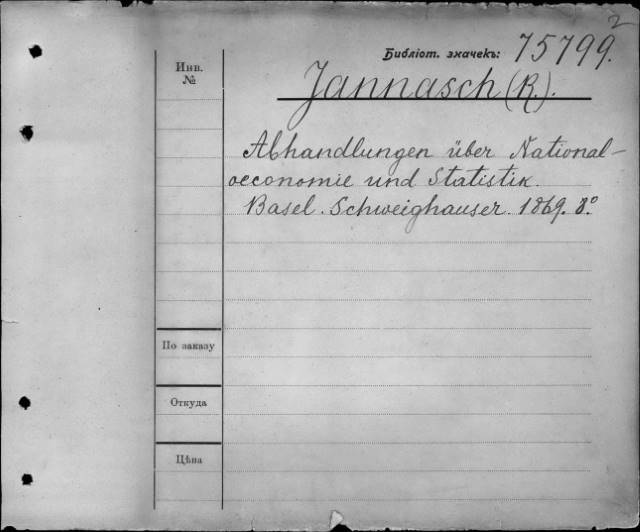 2
Библіот. значекъ: 75799.
Инв.
№
Jannasch (R.).
Abhandlungen über National-
oeconomie und Statistik.
Basel. Schweighauser. 1869. 8°.
По заказу
Откуда
Цѣна